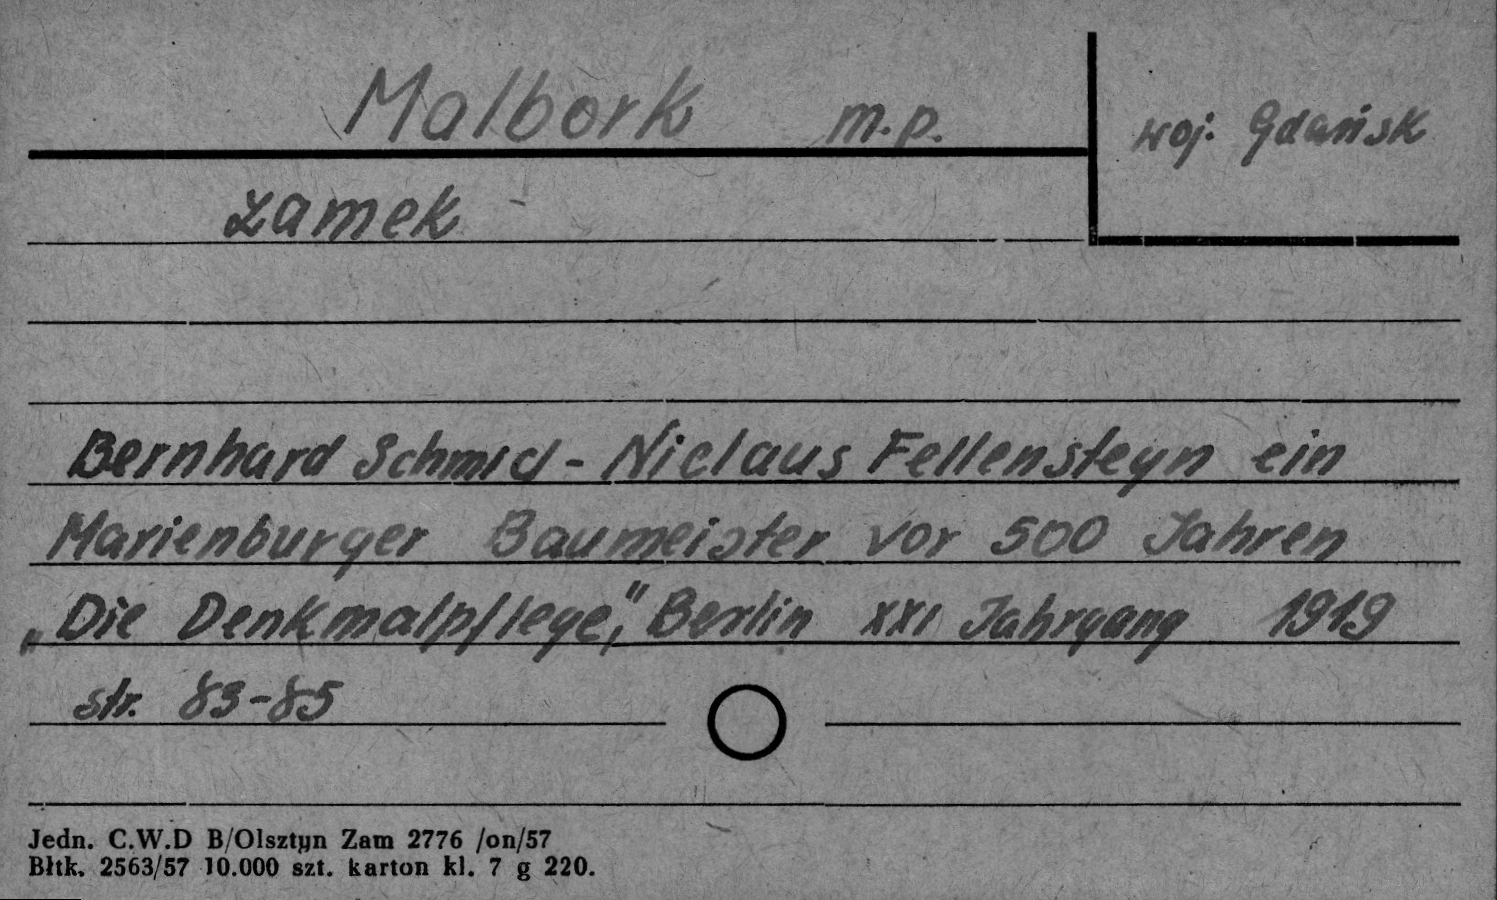 Malbork m.p.
woj. Gdańsk
zamek
Bernhard Schmid - Niclaus Fellensteyn ein
Marienburger Baumeister vor 500 Jahren
„Die Denkmalpflege”, Berlin XXI Jahrgang 1919
str. 83-85
Jedn. C.W.D B/Olsztyn Zam 2776 /on/57
Błtk. 2563/57 10.000 szt. karton kl. 7 g 220.